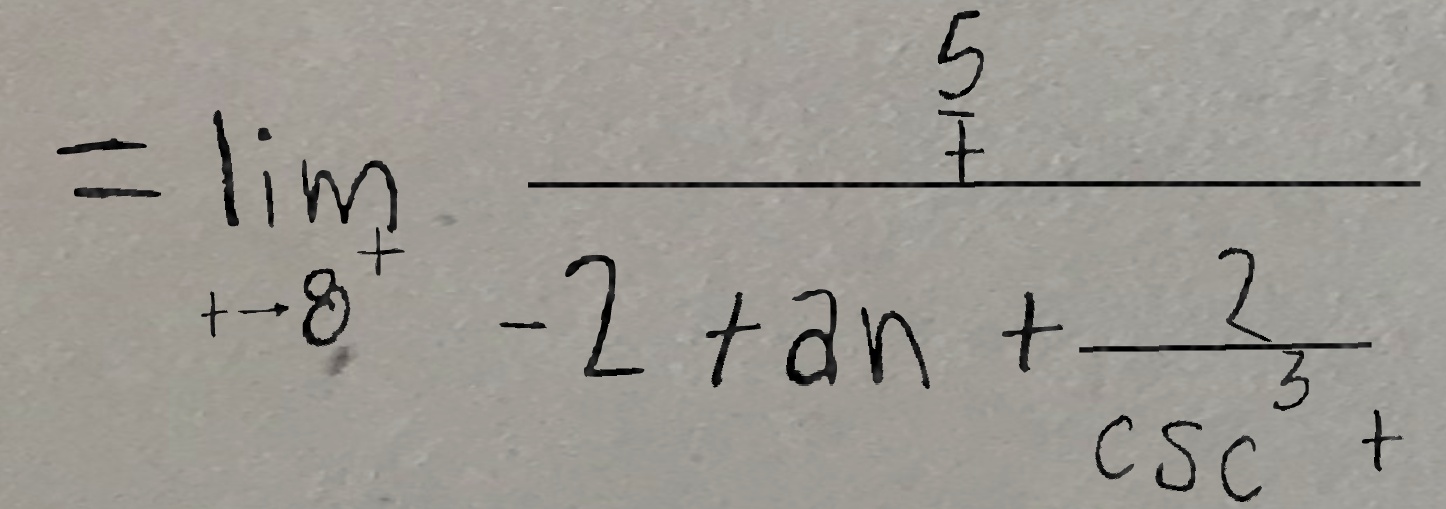 = \lim_{t \to 8^+} \frac{\frac{5}{t}}{-2 \tan t \frac{2}{\csc^3 t}}